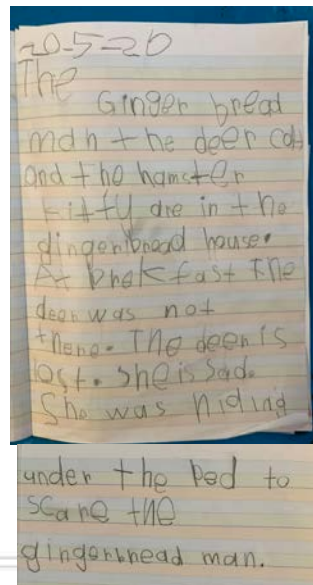 20-5-20
The
Ginger bread
man the deer cat
and the hamster
kitty are in the
gingerbread house.
At brekfast the
deer was not
there. The deer is
lost. She is sad.
She was hiding
under the bed to
scare the
gingerbread man.